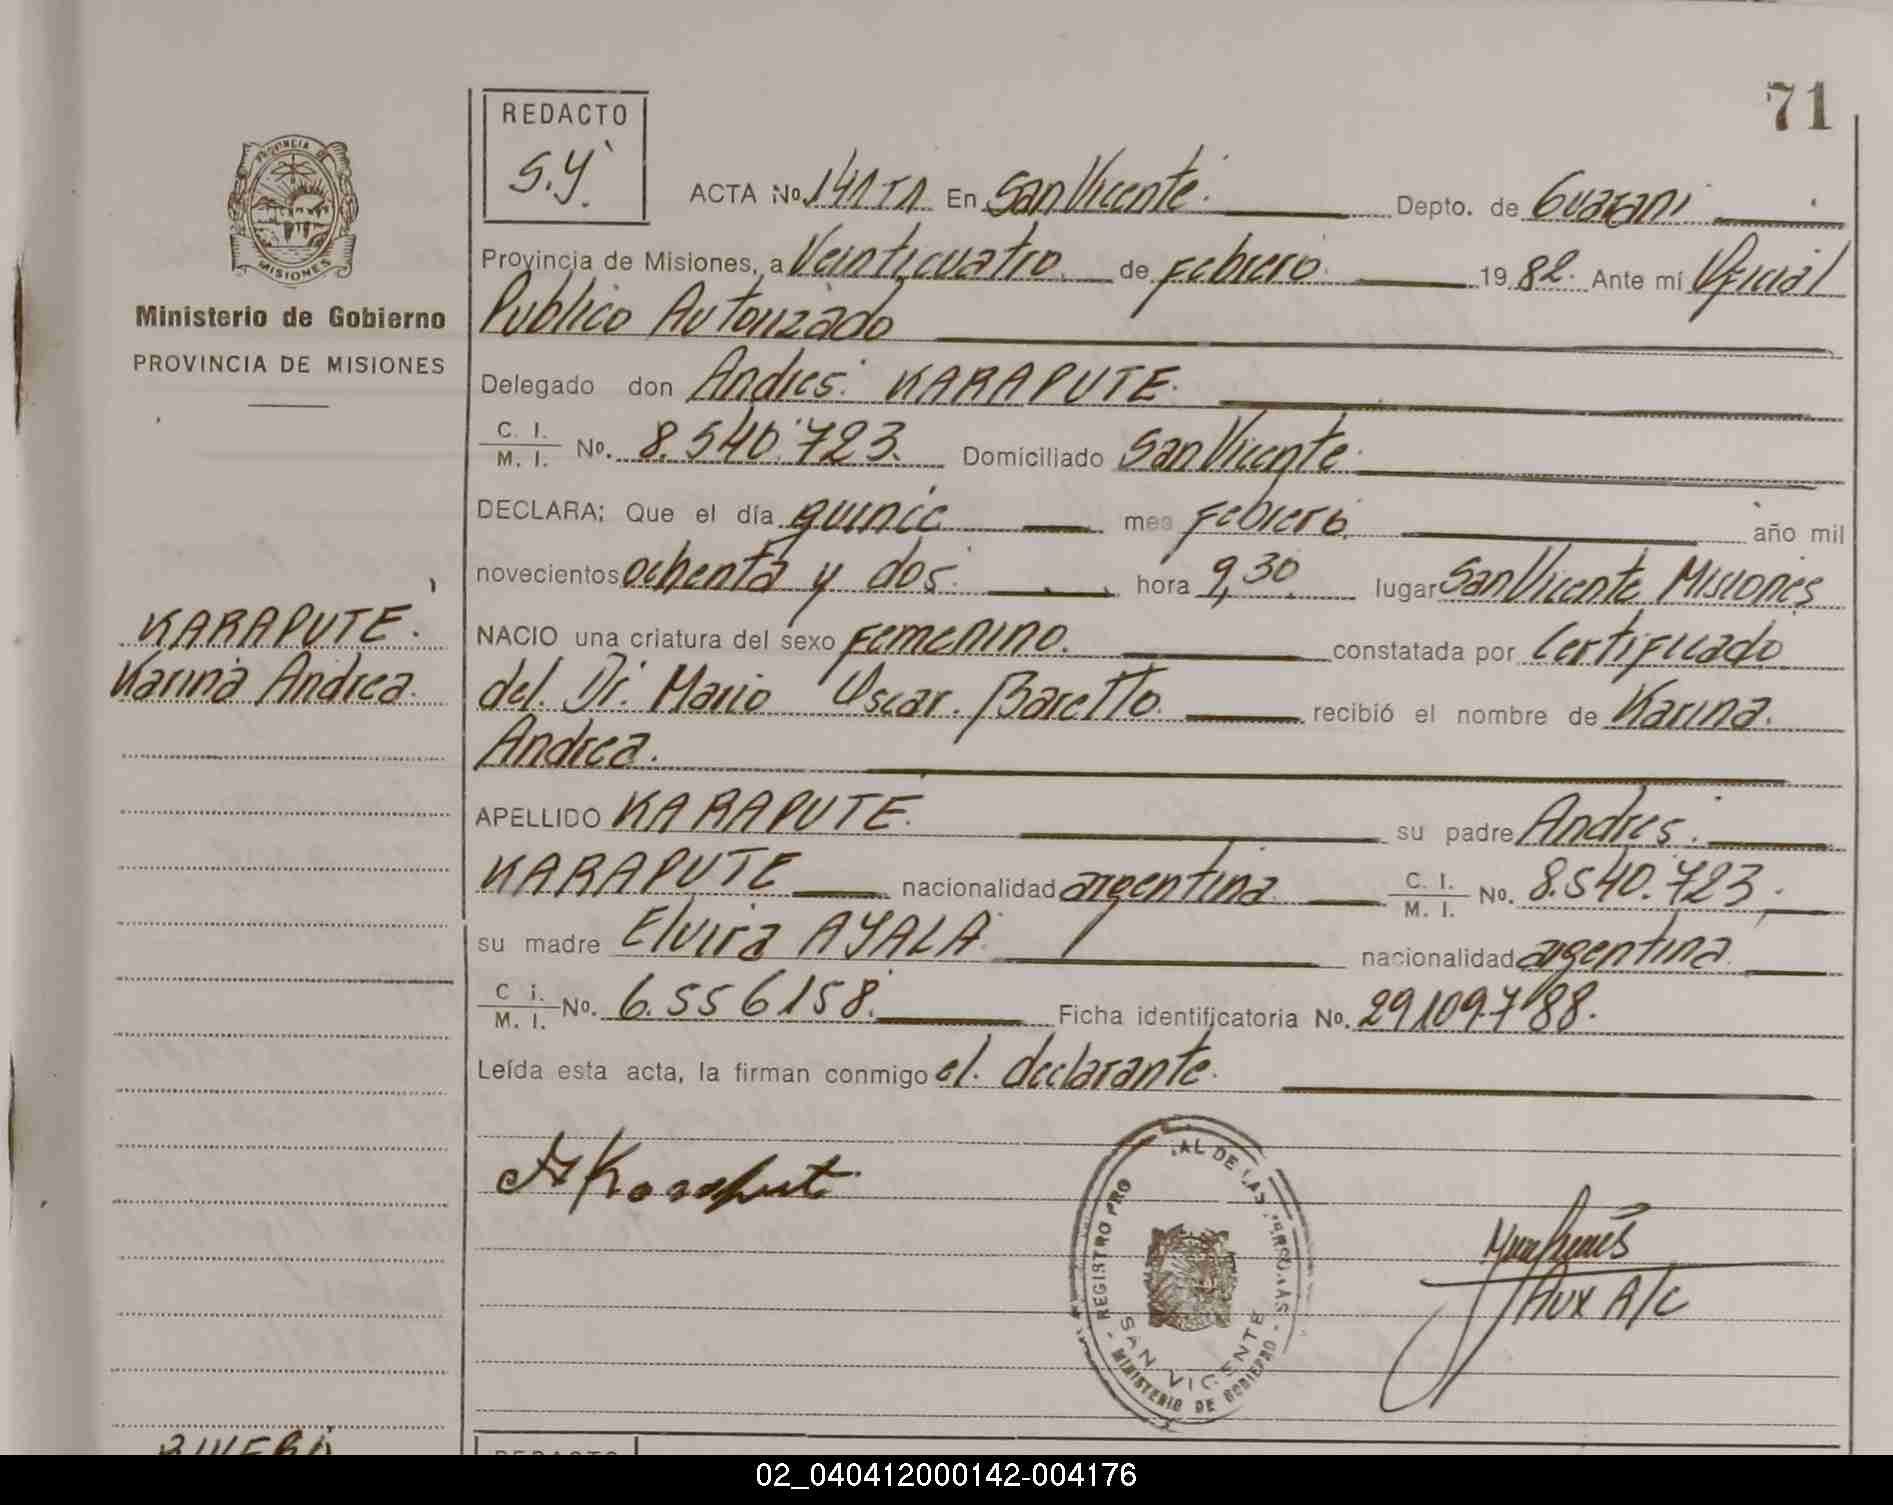 71
REDACTO
S.Y.
ACTA No. 141 T1 En San Vicente. Depto. de Guarani
PROVINCIA DE
MISIONES
Ministerio de Gobierno
PROVINCIA DE MISIONES
Provincia de Misiones, a Veinticuatro de Febrero. 1982. Ante mí Oficial
Publico Autorizado
Delegado don Andres. KARAPUTE.
C. I.
M. I. No. 8.540.723. Domiciliado San Vicente.
DECLARA; Que el día quince mes Febrero. año mil
novecientos ochenta y dos. hora 9,30. lugar San Vicente Misiones
KARAPUTE.
Karina Andrea.
NACIO una criatura del sexo Femenino. constatada por Certificado
del. Dr. Mario Oscar. Baretto. recibió el nombre de Karina.
Andrea.
APELLIDO KARAPUTE. su padre Andres.
KARAPUTE nacionalidad argentina C. I.
M. I. No. 8.540.723.
su madre Elvira AYALA. nacionalidad argentina.
C i.
M. I. No. 6.556158. Ficha identificatoria No. 29.109.788.
Leída esta acta, la firman conmigo el. declarante.
A Karapute
REGISTRO PRO AL DE LAS PERSONAS
SAN VICENTE
MINISTERIO DE GOBIERNO
Aux A/C
REDACTO
02_040412000142-004176